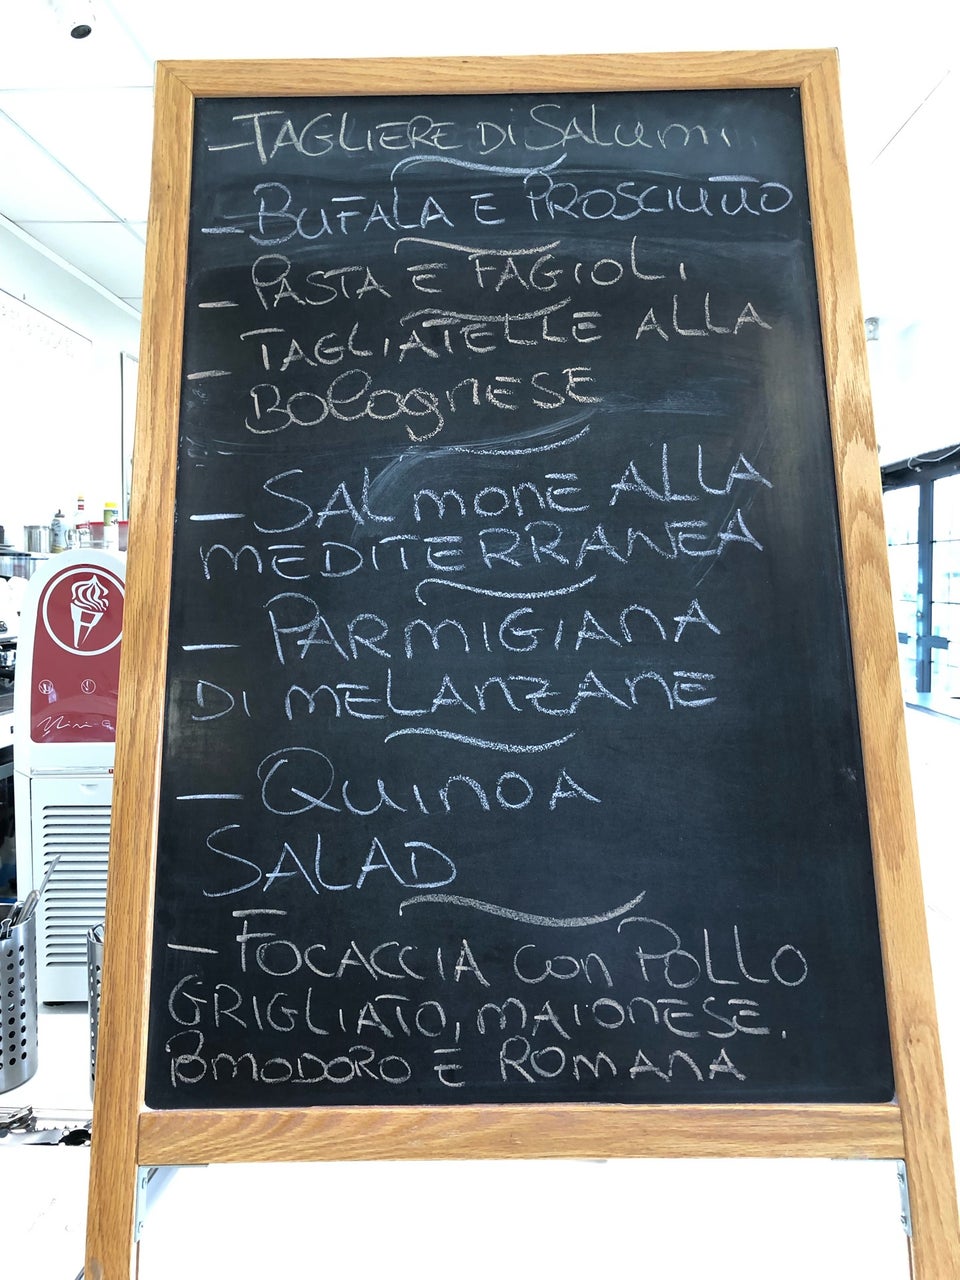 - TAGLIERE DI SALUMI
- BUFALA E PROSCIUTTO
- PASTA E FAGIOLI
- TAGLIATELLE ALLA
BOLOGNESE
- SALMONE ALLA
MEDITERRANEA
- PARMIGIANA
DI MELANZANE
- QUINOA
SALAD
- FOCACCIA CON POLLO
GRIGLIATO, MAIONESE,
POMODORO E ROMANA